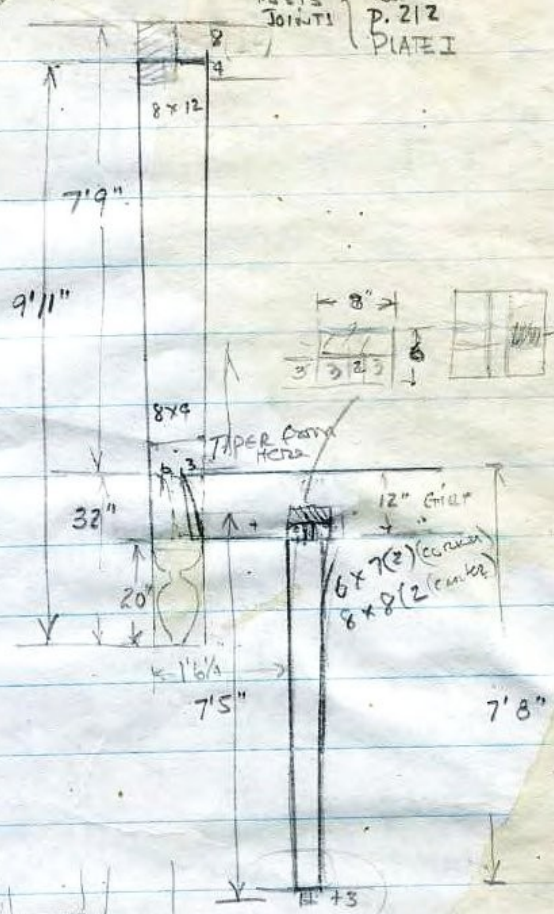 JOINTS
P. 212
PLATE I
8
4
8 x 12
7'9"
9'11"
8"
6
3 3 2 3
8x9
TAPER FROM
HERE
3
32"
12" GIRT
6 x 7 (2) (CORNER)
8 x 8 (2 (CENTER)
20"
7'5"
7'8"
+3